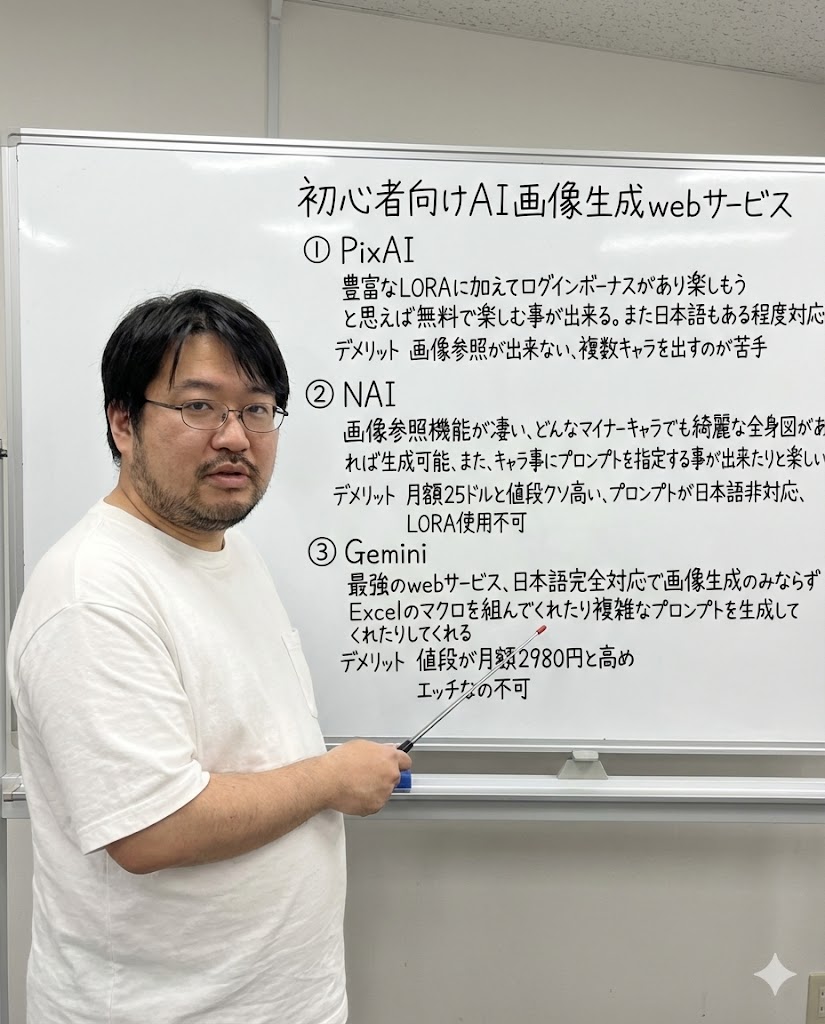 初心者向けAI画像生成webサービス
① PixAI
豊富なLORAに加えてログインボーナスがあり楽しもう
と思えば無料で楽しむ事が出来る。また日本語もある程度対応
デメリット 画像参照が出来ない、複数キャラを出すのが苦手
② NAI
画像参照機能が凄い、どんなマイナーキャラでも綺麗な全身図があ
れば生成可能、また、キャラ事にプロンプトを指定する事が出来たりと楽しい
デメリット 月額25ドルと値段クソ高い、プロンプトが日本語非対応、
LORA使用不可
③ Gemini
最強のwebサービス、日本語完全対応で画像生成のみならず
Excelのマクロを組んでくれたり複雑なプロンプトを生成して
くれたりしてくれる
デメリット 値段が月額2980円と高め
エッチなの不可